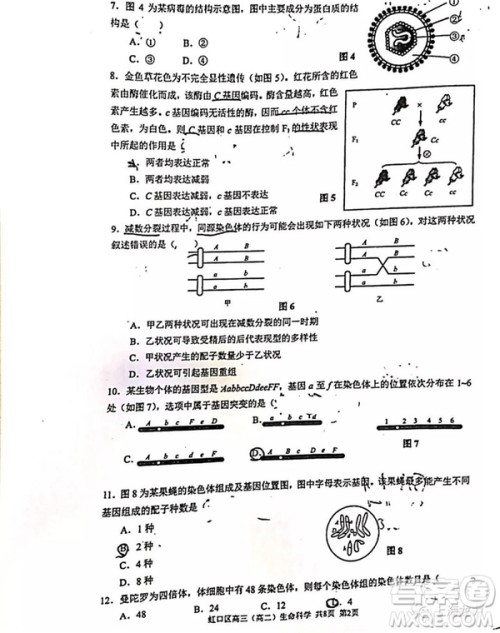 7. 图 4 为某病毒的结构示意图,图中主要成分为蛋白质的结
构是( )
A. ① B. ②
C. ③ D. ④
图 4
①
②
③
④
8. 金鱼草花色为不完全显性遗传(如图 5)。红花所含的红色
素由酶催化而成,该酶由 C 基因编码。酶含量越高,红色素
产生越多。c 基因编码无活性的酶,因而 cc 个体不含红
色素,为白色。则 C 基因和 c 基因在控制 F₁ 的性状表现
中所起的作用是( )
A. 两者均表达正常
B. 两者均表达减弱
C. C 基因表达,c 基因不表达
D. C 基因表达减弱,c 基因表达正常
图 5
P
CC × cc
F₁
Cc
⊗
F₂
CC Cc Cc cc
9. 减数分裂过程中,同源染色体的行为可能会出现如下两种状况(如图 6),对这两种状况
叙述错误的是( )
A B
A B
a b
a b
甲
A B
A B
a b
a b
乙
图 6
A. 甲乙两种状况可出现在减数分裂的同一时期
B. 乙状况可能导致受精后的后代表现型的多样性
C. 甲状况产生的配子数量少于乙状况
D. 乙状况可引起基因重组
10. 某生物个体的基因型是 AabbccDdeeFF,基因 a 至 f 在染色体上的位置依次分布在 1~6
处(如图 7),选项中属于基因突变的是( )
A. A b c F e D
B.
C. A b c d e F
D. A b c F e F
1 2 3 4 5 6
图 7
11. 图 8 为某果蝇的染色体组成及基因位置图,图中字母表示基因。该果蝇最多能产生不同
基因组成的配子种数是( )
A. 1 种
B. 2 种
C. 4 种
D. 8 种
图 8
12. 曼陀罗为四倍体,体细胞中有 48 条染色体,则每个染色体组的染色体数目是( )
A. 48 B. 24 C. 12 D. 4
虹口区高三(高二)生命科学 共8页 第2页